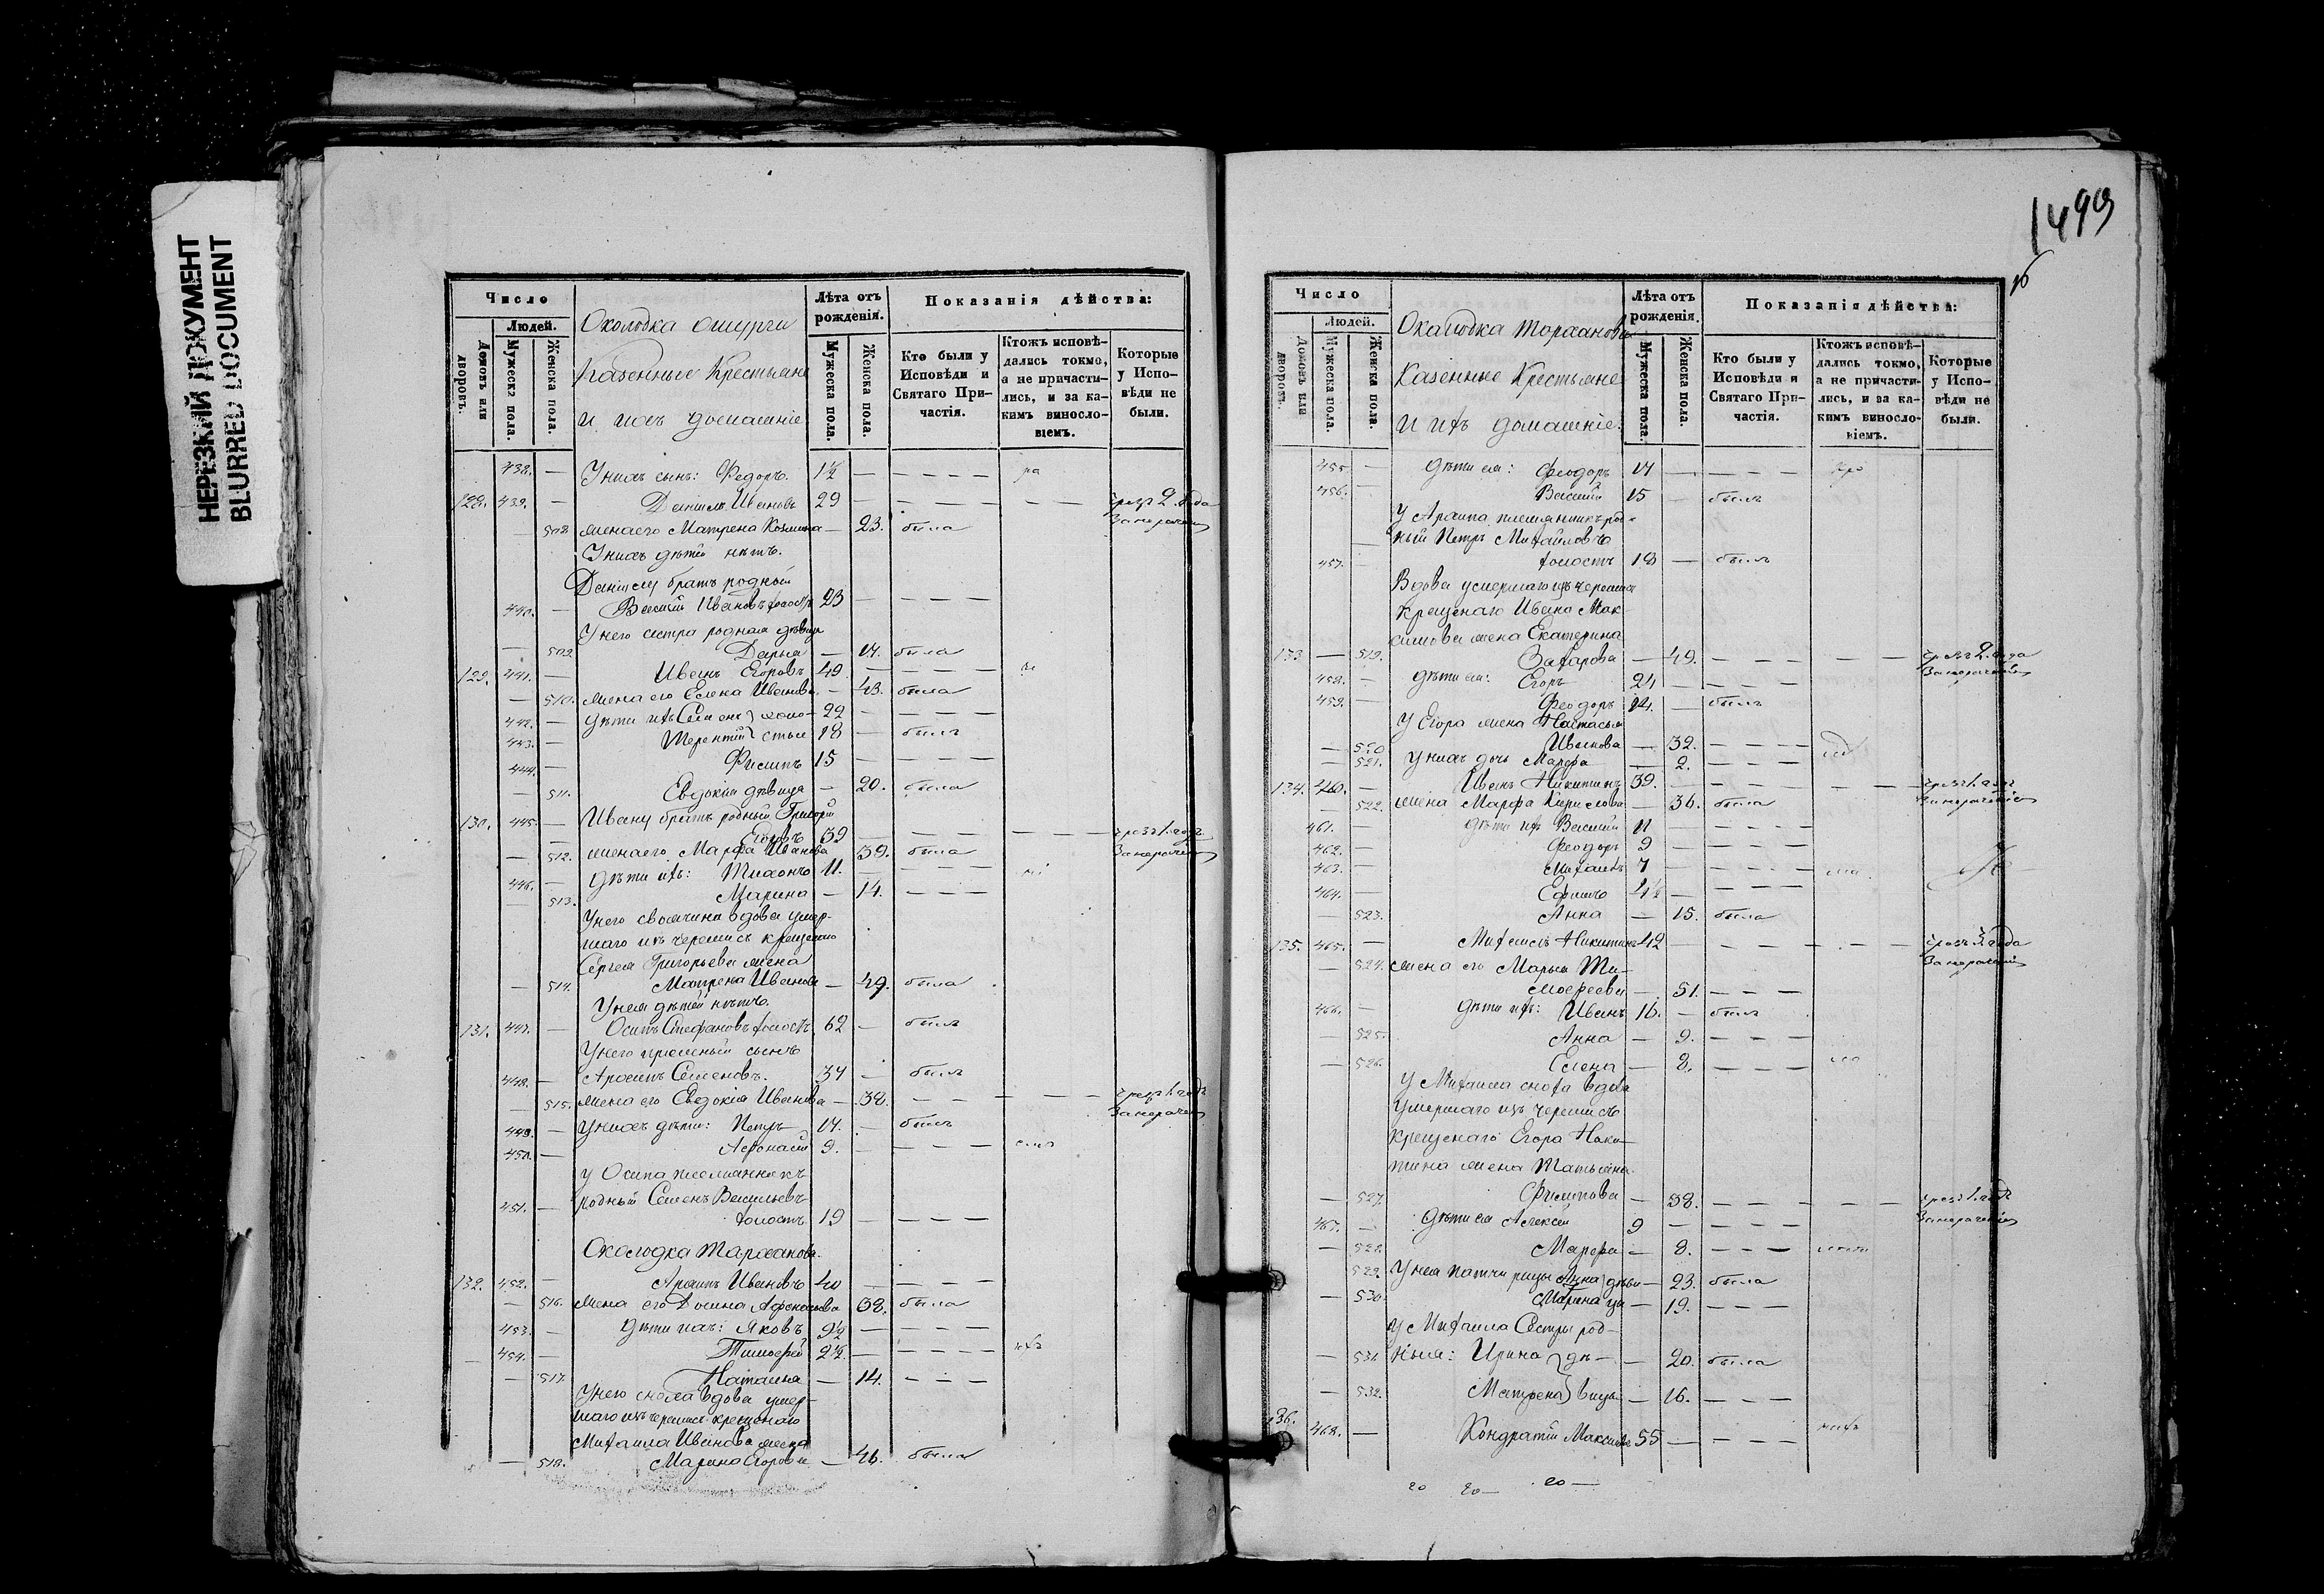 НЕРЕЗКИЙ ДОКУМЕНТ
BLURRED DOCUMENT
Число
Людей.
Домовъ или дворовъ.
Мужеска пола.
Женска пола.
Околодка
Казенные Крестьяне
и ихъ домашніе
Лѣта отъ рожденія.
Мужеска пола.
Женска пола.
Показанія дѣйства:
Кто были у Исповѣди и Святаго Причастія.
Ктожъ исповѣдались токмо, а не причастились, и за какимъ винословіемъ.
Которые у Исповѣди не были.
438. — У нихъ сынъ: Федоръ. 1½ — — — —
128. 439. — Даніилъ Ивановъ 29 — — — — чрезъ 2. года
— 508 жена его Матрена Козмина — 23. была
У нихъ дѣтей нѣтъ.
Даніилу братъ родный
440. — Василій Ивановъ холостъ 23 — — — —
У него сестра родная дѣвица
— 509. Дарья — 17. была
129. 441. — Иванъ Егоровъ 49. — — — —
— 510. жена его Елена Иванова — 43. была
442. — дѣти ихъ Семенъ } холо- 22 — — — —
443. — Терентій } стые 18 — былъ
444. — Филипъ 15 — — — —
— 511. Евдокія дѣвица — 20. была
130. 445. — Ивану братъ родный Григорій
Егоровъ 39 — — — — чрезъ 1. годъ
— 512. жена его Марфа Иванова 39. была
446. — дѣти ихъ: Тихонъ 11. — — — —
— 513. Марина — 14. — — —
У него своячина вдова умер-
шаго изъ черемисъ крещенаго
Сергея Григорьева жена
— 514. Матрена Иванова — 49. была
У нея дѣтей нѣтъ.
131. 447. — Осипъ Стефановъ холостъ. 62 — былъ
У него приемный сынъ
448. — Архипъ Семеновъ. 37 — былъ
— 515. жена его Евдокія Иванова — 38. — — — чрезъ 1. годъ
449. — У нихъ дѣти: Петръ 17. — былъ
450. — Афонасій 9. — — — —
у Осипа племянникъ
451. — родный Семенъ Васильевъ
холостъ 19 — — — —
Околодка
132. 452. — Архипъ Ивановъ 40 — — — —
— 516. жена его Афонасьева 38. была
453. — дѣти ихъ: Яковъ 9½ — — — —
454. — Тимофей 2½. — — — —
— 517. Наталья — 14. — — —
У него сноха вдова умер-
шаго изъ черемисъ крещенаго
Михаила Иванова жена
— 518. Марина Егорова — 46. была
1499
Число
Людей.
Домовъ или дворовъ.
Мужеска пола.
Женска пола.
Околодка
Казенные Крестьяне
и ихъ домашніе.
Лѣта отъ рожденія.
Мужеска пола.
Женска пола.
Показанія дѣйства:
Кто были у Исповѣди и Святаго Причастія.
Ктожъ исповѣдались токмо, а не причастились, и за какимъ винословіемъ.
Которые у Исповѣди не были.
455. — дѣти ея: Феодоръ 17 — — — —
456. — Василій 15 — былъ
У Архипа племянникъ род-
ный Петръ Михайловъ
457. — холостъ 18 — былъ
Вдова умершаго изъ черемисъ
крещенаго Ивана Мак-
симова жена Екатерина
133 — 519. Захарова — 49. — — — чрезъ 2. года
458. — дѣти ея: Егоръ 24 — — — —
459. — Феодоръ 14. — былъ
У Егора жена Настасья
— 520 Иванова — 32. — — —
— 521. У нихъ дочь Марфа — 2. — — —
134. 460. — Иванъ Никитинъ 39. — — — — чрезъ 1. годъ
— 522. жена Марфа Кирилова — 36. была
461. — дѣти ихъ Василій 11 — — — —
462. — Феодоръ 9 — — — —
463. — Михаилъ 7 — — — —
464. — Ефимъ 4½ — — — —
— 523. Анна — 15. была
135. 465. — Михаилъ Никитинъ 42 — — — — чрезъ 3. года
— 524. жена его Марья Ти-
мофеева — 51. — — —
466. — дѣти ихъ: Иванъ 16. — былъ
— 525. Анна — 9. — — —
— 526. Елена — 8. — — —
У Михаила сноха вдова
умершаго изъ черемисъ
крещенаго Егора Ники-
тина жена Татьяна
— 527. Филипова — 38. — — — чрезъ 1. годъ
467. — дѣти ея Алексѣй 9 — — — —
— 528. Марфа — 8. — — —
529. У нея патчирицы Анна } дѣви- — 23. была
— 530. Марина } цы — 19. — — —
У Михаила Сестры род-
— 531. ныя: Ирина } дѣ- — 20. была
— 532. Матрена } вицы — 16. — — —
136. 468. — Кондратій Максимовъ 55 — — — —